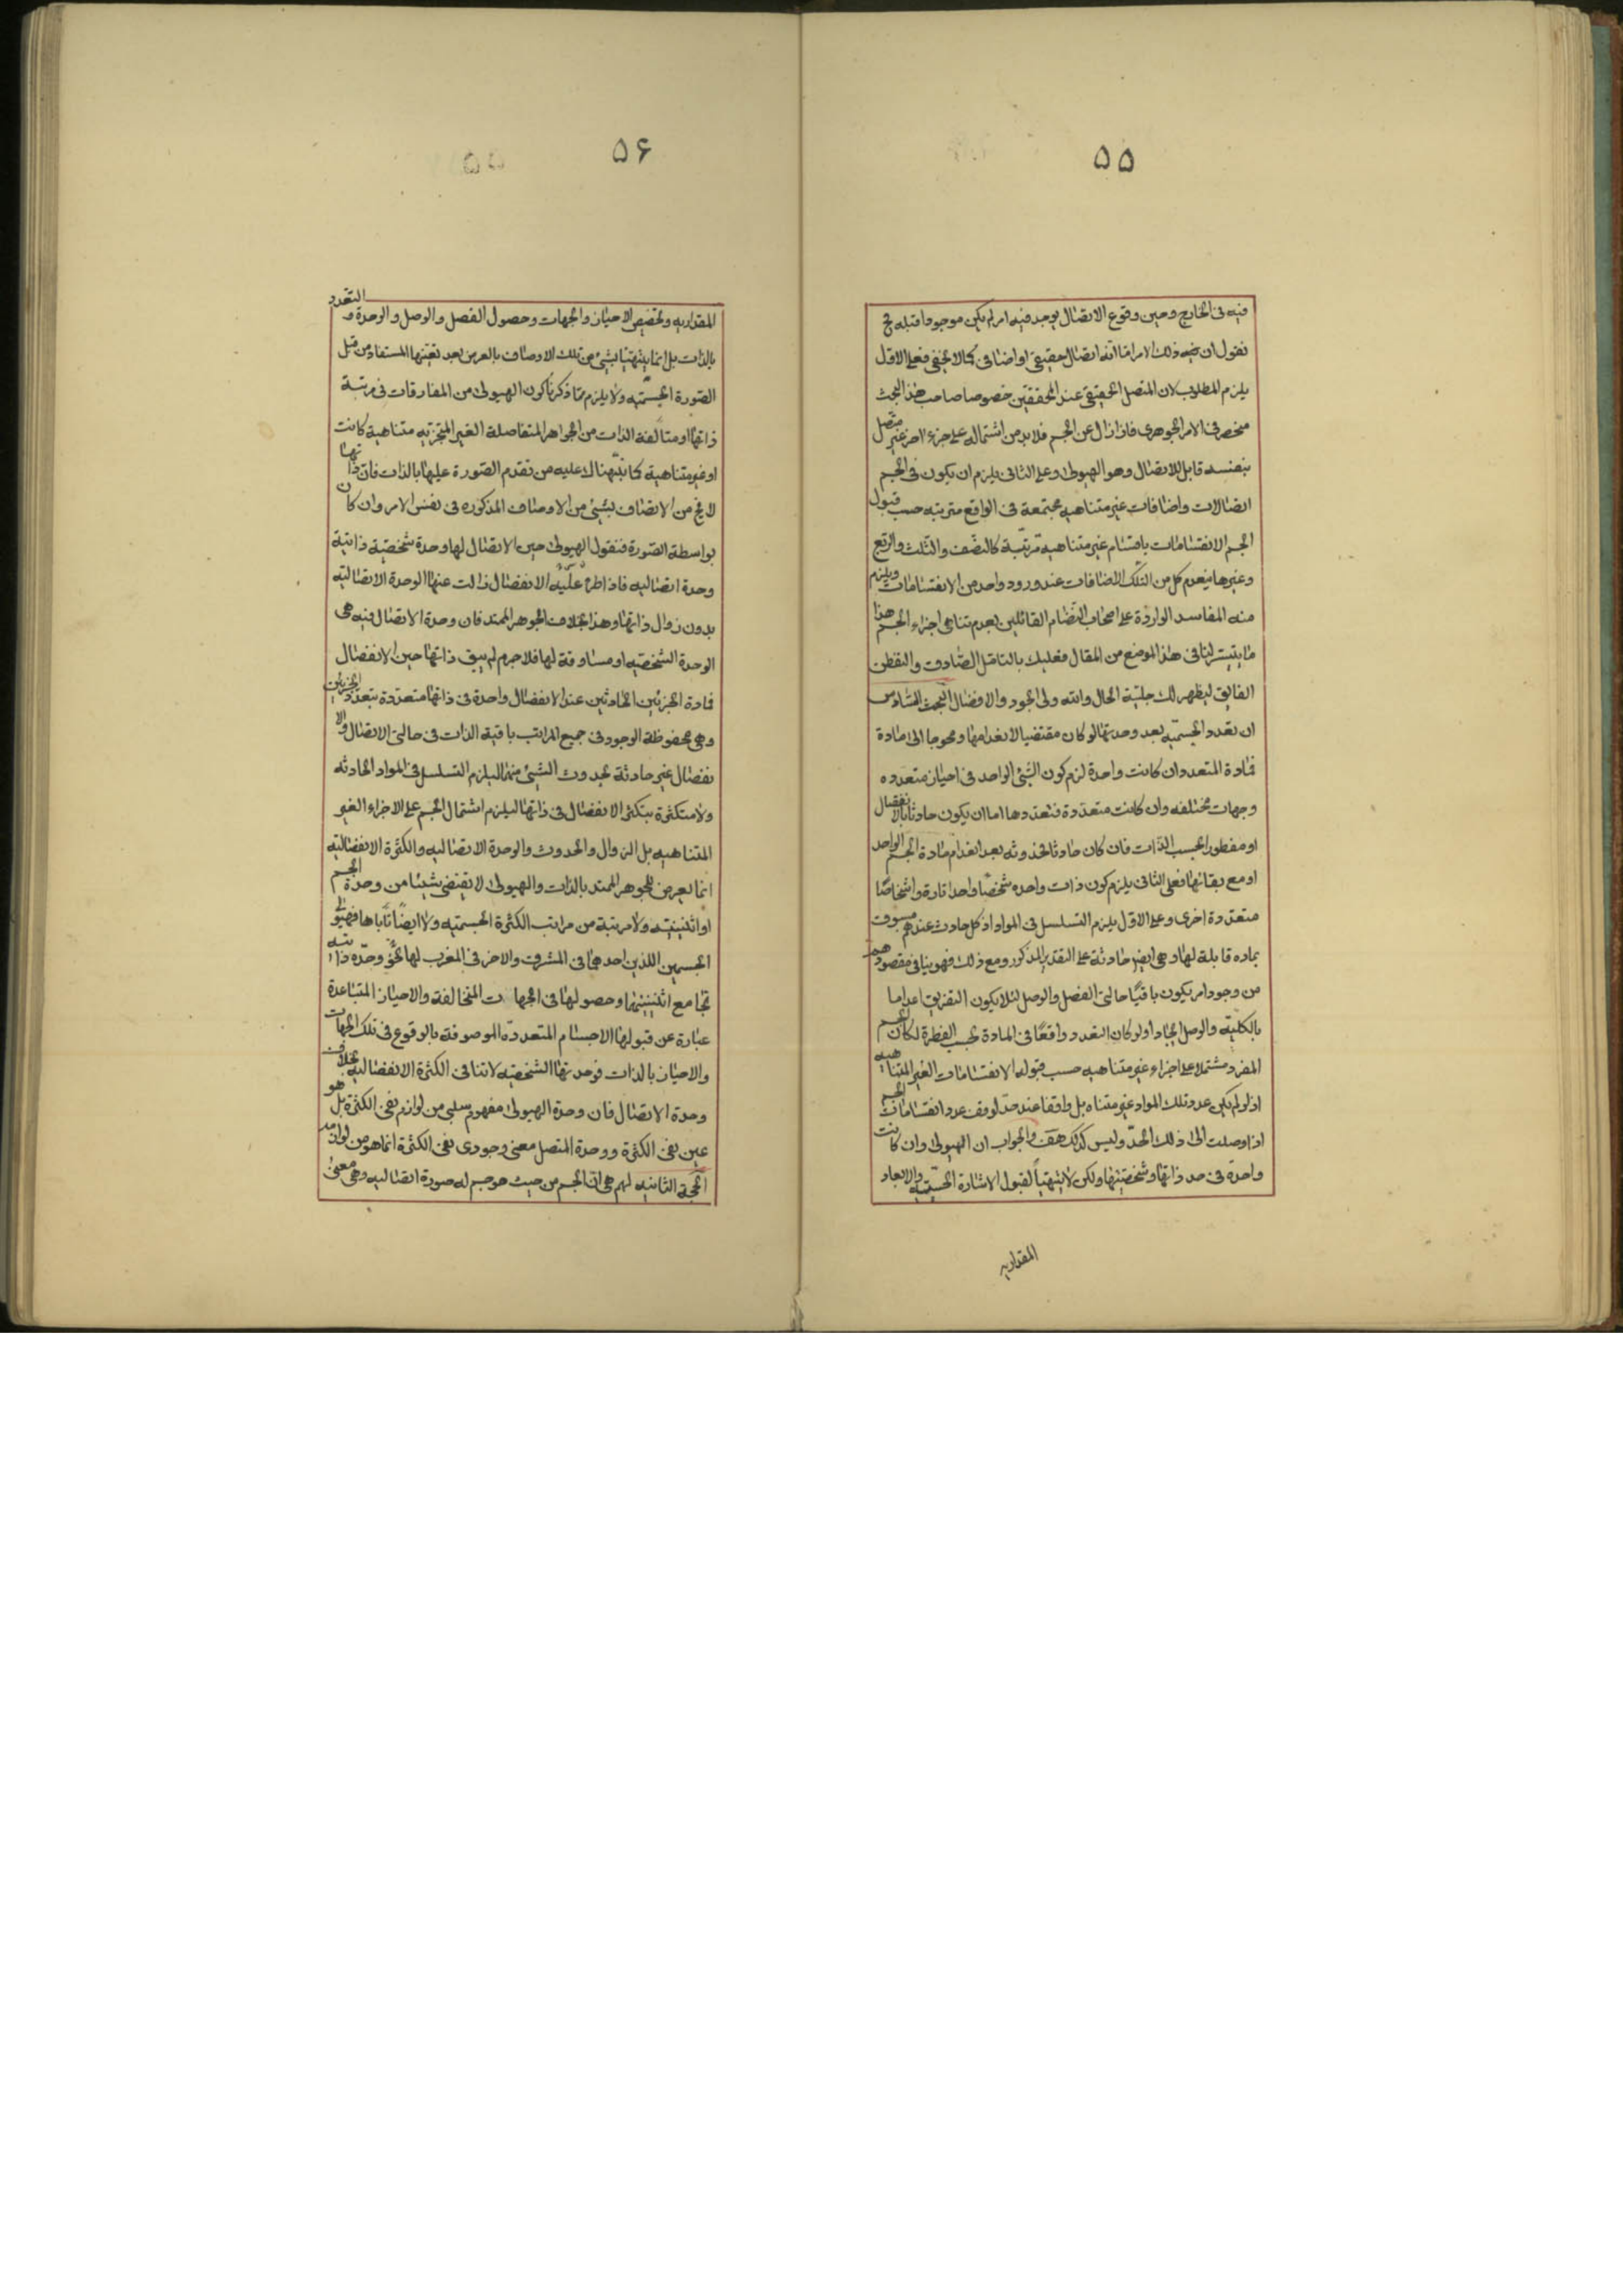 ۵۵
فيه فى الخارج وحين وقوع الاتصال يوجد فيه امر لم يكن موجودا قبله ح
نقول ان هذا الامر اما اتصال حقيقى او اضافى كما لا يخفى فعلى الاول
يلزم المطلوب لان المتصل الحقيقى عند المحققين خصوصا صاحب هذا البحث
منحصر فى الامر الجوهرى فاذا زال عن الجسم فلا بد من اشتماله على جزء اخر غير متصل
بنفسه قابل للاتصال وهو الهيولى وعلى الثانى يلزم ان يكون فى الجسم
اتصالات واضافات غير متناهيه مجتمعة فى الواقع مترتبه حسب قبول
الجسم الانقسامات باقسام غير متناهية مرتبة كالنصف والثلث والربع
وغيرها ينعدم كل من تلك الاضافات عند ورود واحد من الانقسامات ويلزم
منه المفاسد الواردة على اصحاب النظام القائلين بعدم تناهى اجزاء الجسم هذا
ما يتيسر لنا فى هذا الموضع من المقال فعليك بالتامل الصادق والتفطن
الفايق ليظهر لك جلية الحال والله ولى الجود والافضال البحث السادس
ان تعدد الجسميه بعد وحدتها لو كان مقتضيا لانعدامها ومحوجا الى مادة
فمادة المتعدد ان كانت واحدة لزم كون الشئ الواحد فى احياز متعدده
وجهات مختلفه وان كانت متعددة فتعددها اما ان يكون حادثا بالانفصال
او مفطورا بحسب الذات فان كان حادثا فحدوثه بعد انعدام مادة الجسم الواحد
او مع بقائها فعلى الثانى يلزم كون ذات واحده شخصا واحدا تارة واشخاصا
متعددة اخرى وعلى الاول يلزم التسلسل فى المواد اذ كل حادث عندهم مسبوق
بماده قابلة لها وهى ايضا حادثة على التقدير المذكور ومع ذلك فهو ينافى مقصودهم
من وجود امر يكون باقيا حالتى الفصل والوصل لئلا يكون التفريق اعداما
بالكلية والوصل ايجادا ولو كان التعدد واقعا فى المادة بحسب الفطرة لكان الجسم
المفرد مشتملا على اجزاء غير متناهيه حسب قبوله الانقسامات الغير المتناهيه
اذ لو لم يكن عدد تلك المواد غير متناه بل واقفا عند حد لوقف عدد انقسامات الجسم
اذا وصلت الى ذلك الحد وليس كذلك هف والجواب ان الهيولى وان كانت
واحدة فى حد ذاتها وشخصيتها ولكن لا يتهيأ لقبول الاشارة الحسية والابعاد
المقداريه
۵۶
التعدد
المقداريه وتخصيص الاحياز والجهات وحصول الفصل والوصل والوحدة و
بالذات بل انما يتهيأ بشئ من تلك الاوصاف بالعرض بعد تعينها المستفاد من قبل
الصورة الجسميه ولا يلزم مما ذكرنا كون الهيولى من المفارقات فى مرتبة
ذاتها او متالفة الذات من الجواهر المتفاصلة الغير المتجزيه متناهية كانت
او غير متناهية كما نبهناك عليه من تقدم الصورة عليها بالذات فان ذاتها
لا يخ من الاتصاف بشئ من الاوصاف المذكوره فى نفس الامر وان كان
بواسطة الصورة فنقول الهيولى حين الاتصال لها وحدة شخصية ذاتية
وحدة اتصاليه فاذا طرأ عليه الانفصال زالت عنها الوحدة الاتصالية
بدون زوال ذاتها وهذا بخلاف الجوهر الممتد فان وحدة الاتصال فيه هى
الوحدة الشخصيه او مساوقة لها فلا جرم لم يبق ذاتها حين الانفصال
فمادة الجزئين الحادثين عند الانفصال واحدة فى ذاتها متعددة بتعدد الجزئين
وهى محفوظة الوجود فى جميع المراتب باقية الذات فى حالتى الاتصال والا
نفصال غير حادثة بحدوث الشئ منهما ليلزم التسلسل فى المواد الحادثه
ولا متكثرة بتكثر الانفصال فى ذاتها ليلزم اشتمال الجسم على الاجزاء الغير
المتناهيه بل الزوال والحدوث والوحدة الاتصاليه والكثرة الانفصالية
انما يعرض للجوهر الممتد بالذات والهيولى لا يقتضى شيئا من وحدة الجسم
او اثنينيته ولا مرتبة من مراتب الكثرة الجسميه ولا ايضا تاباها فهيولى
الجسمين اللذين احدهما فى المشرق والاخر فى المغرب لها نحو وحدة ذاتيه
تجامع اثنينيتهما وحصولها فى الجهات المتخالفة والاحياز المتباعدة
عبارة عن قبولها الاجسام المتعدده الموصوفة بالوقوع فى تلك الجهات
والاحياز بالذات فوحدتها الشخصيه لا تنافى الكثرة الانفصاليه بخلاف
وحدة الاتصال فان وحدة الهيولى مفهوم سلبى من لوازم نفى الكثرة بل هو
عين نفى الكثرة ووحدة المتصل معنى وجودى نفى الكثرة انما هو من لوازمه
الحجة الثانيه لهم هى ان الجسم من حيث هو جسم له صورة اتصاليه وهى معنى